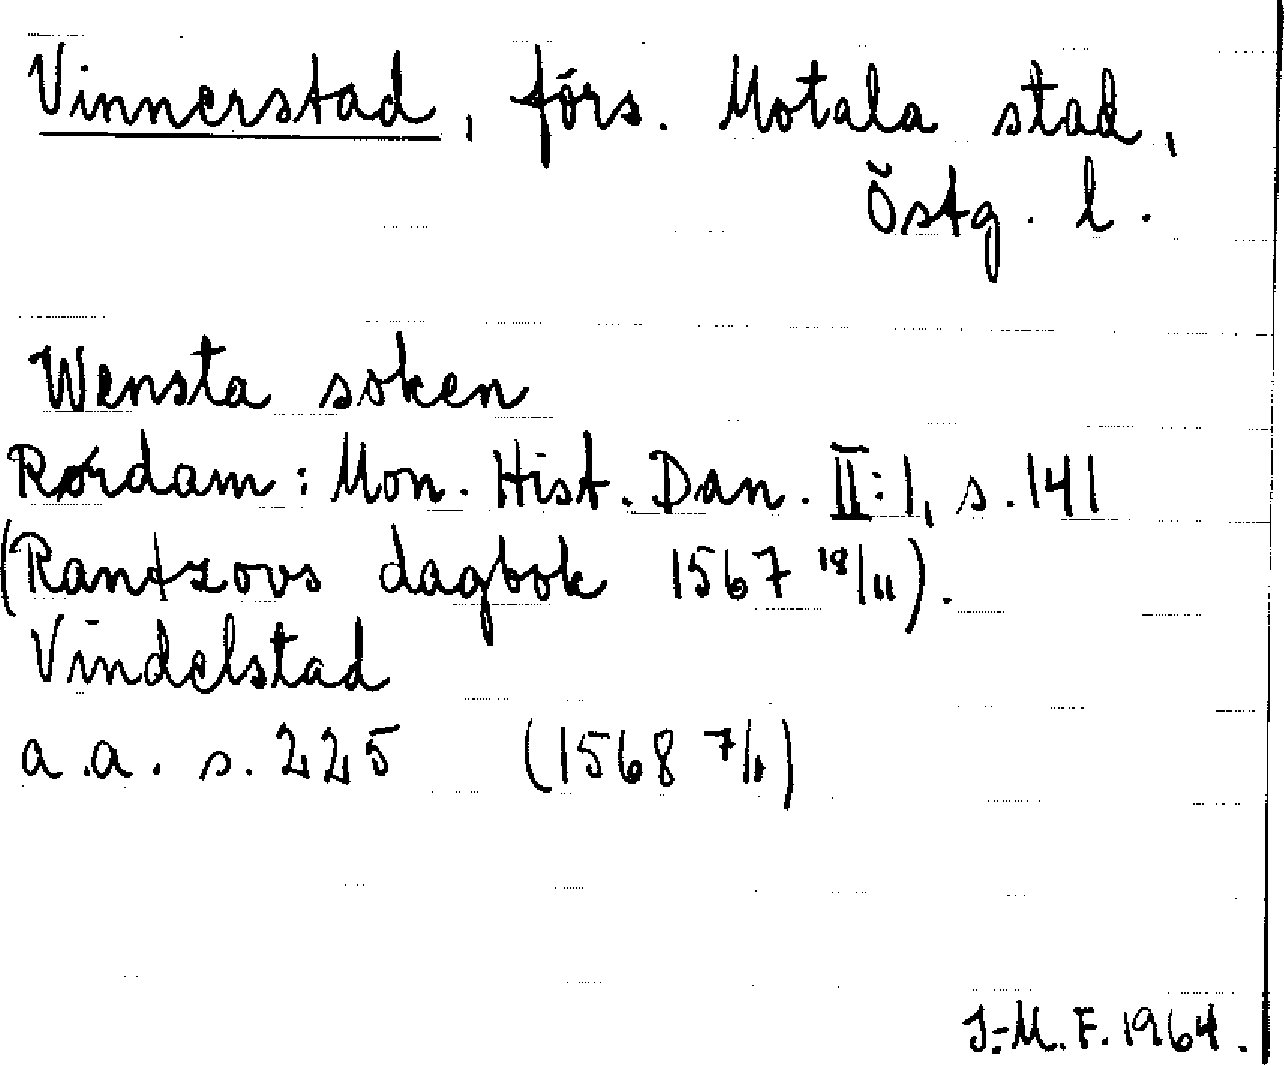 Vinnerstad, förs. Motala stad,
Östg. l.
Wensta soken
Rørdam: Mon. Hist. Dan. II:1, s. 141
(Rantzovs dagbok 1567 18/11).
Vindelstad
a.a. s. 225 (1568 7/1)
J.-M. F. 1964.